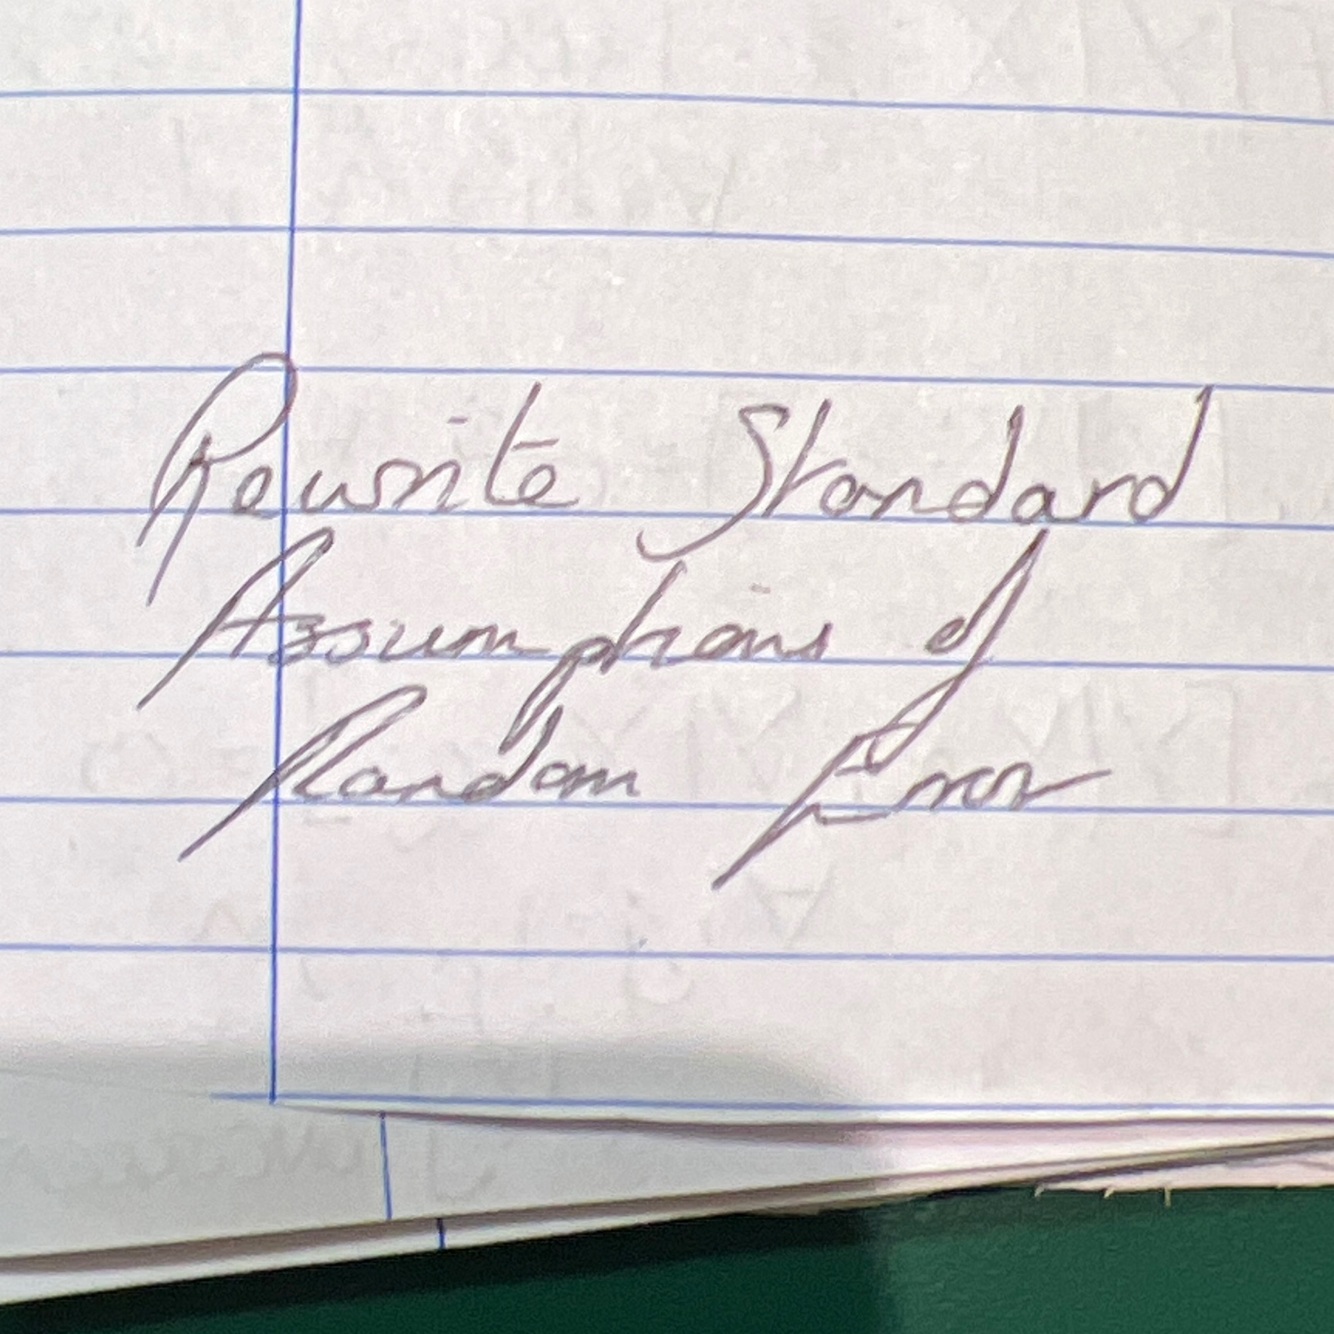 Rewrite Standard
Assumptions of
Random Error